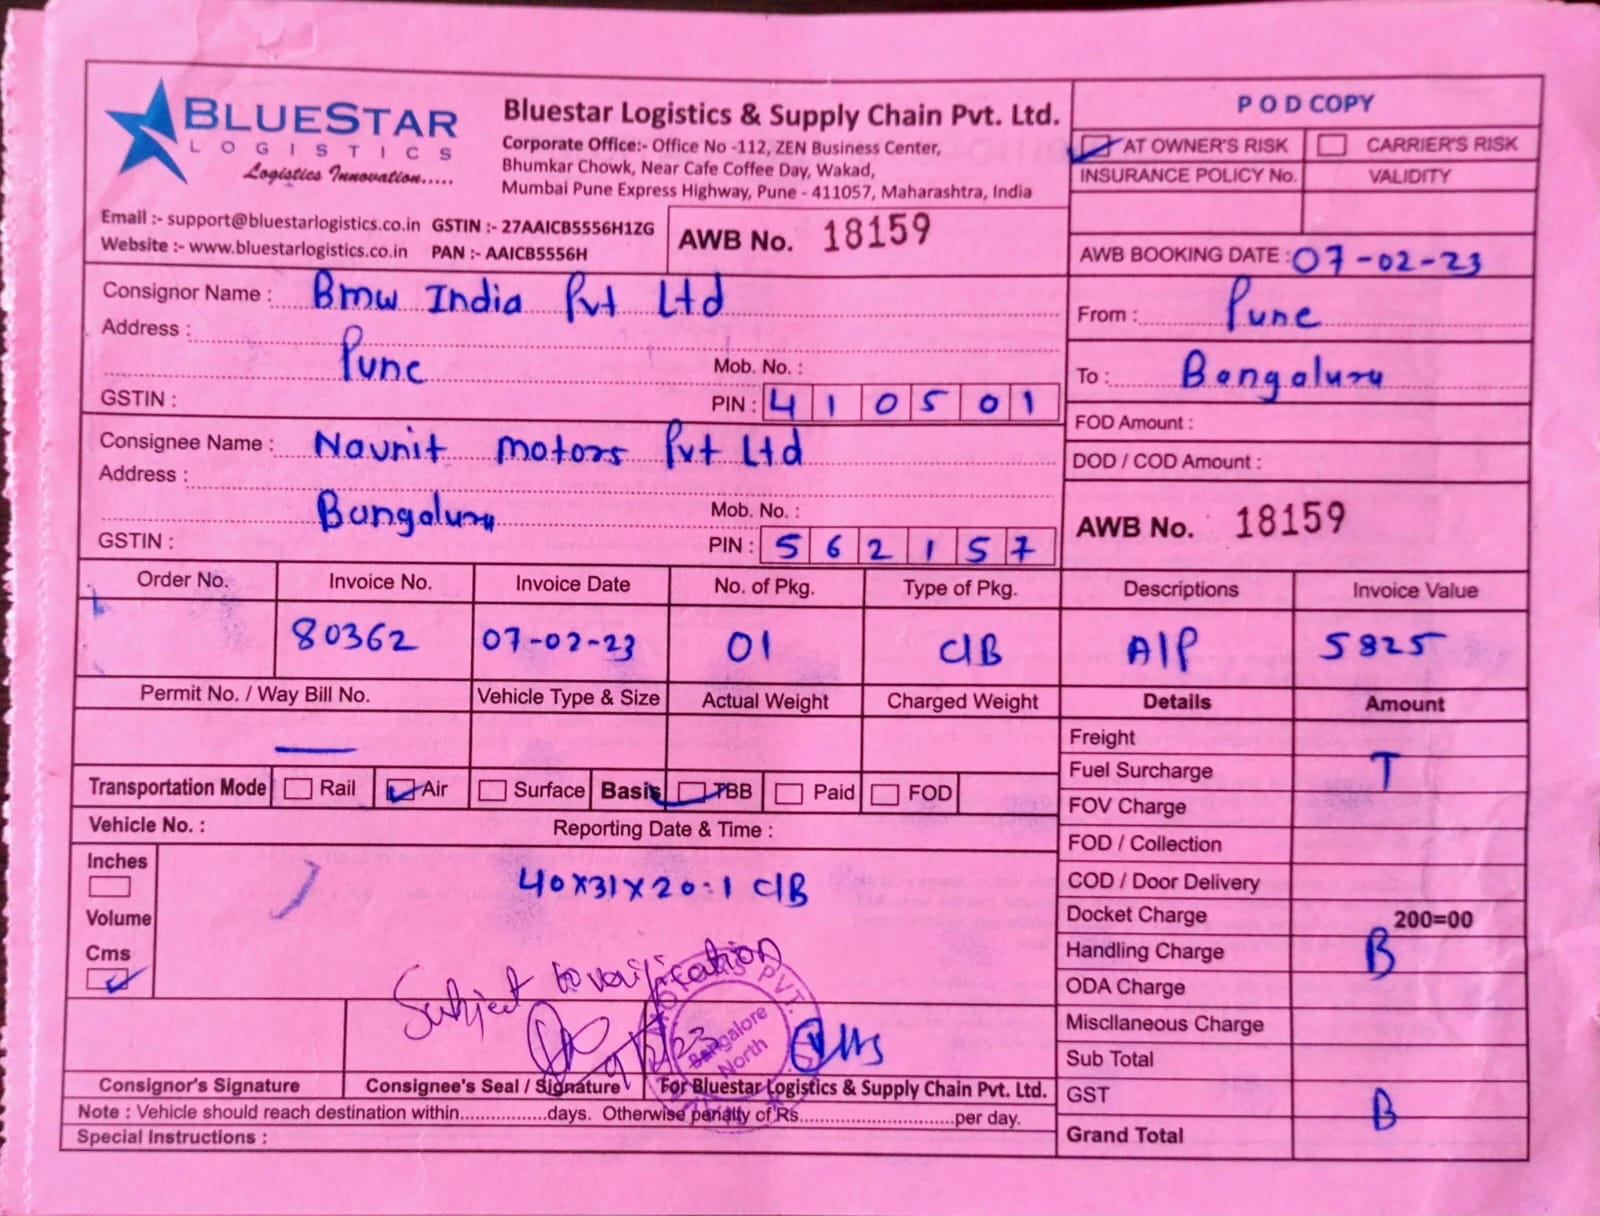 BLUESTAR
LOGISTICS
Logistics Innovation.....
Bluestar Logistics & Supply Chain Pvt. Ltd.
Corporate Office:- Office No -112, ZEN Business Center,
Bhumkar Chowk, Near Cafe Coffee Day, Wakad,
Mumbai Pune Express Highway, Pune - 411057, Maharashtra, India
Email :- support@bluestarlogistics.co.in GSTIN :- 27AAICB5556H1ZG
Website :- www.bluestarlogistics.co.in PAN :- AAICB5556H
AWB No. 18159
POD COPY
AT OWNER'S RISK CARRIER'S RISK
INSURANCE POLICY No. VALIDITY
AWB BOOKING DATE : 07-02-23
Consignor Name : Bmw India Pvt Ltd
Address :
Pune Mob. No. :
GSTIN : PIN : 410501
From : Pune
To : Bangaluru
Consignee Name : Navnit motors Pvt Ltd
Address :
Bangaluru Mob. No. :
GSTIN : PIN : 562157
FOD Amount :
DOD / COD Amount :
AWB No. 18159
Order No. Invoice No. Invoice Date No. of Pkg. Type of Pkg. Descriptions Invoice Value
80362 07-02-23 01 C/B A/P 5825
Permit No. / Way Bill No. Vehicle Type & Size Actual Weight Charged Weight Details Amount
Freight
Fuel Surcharge T
FOV Charge
FOD / Collection
COD / Door Delivery
Docket Charge 200=00
Handling Charge B
ODA Charge
Miscllaneous Charge
Sub Total
GST B
Grand Total
Transportation Mode Rail Air Surface Basis TBB Paid FOD
Vehicle No. : Reporting Date & Time :
Inches
Volume
Cms
40x31x20=1 C/B
Subject to verification
PVT.
Bangalore
North
Consignor's Signature Consignee's Seal / Signature For Bluestar Logistics & Supply Chain Pvt. Ltd.
Note : Vehicle should reach destination within.................days. Otherwise penalty of Rs..............................per day.
Special Instructions :